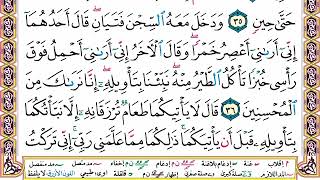 حَتَّىٰ حِينٍ ٣٥ وَدَخَلَ مَعَهُ ٱلسِّجْنَ فَتَيَانِ قَالَ أَحَدُهُمَا
إِنِّىٓ أَرَىٰنِىٓ أَعْصِرُ خَمْرًا وَقَالَ ٱلْآخَرُ إِنِّىٓ أَرَىٰنِىٓ أَحْمِلُ فَوْقَ
رَأْسِى خُبْزًا تَأْكُلُ ٱلطَّيْرُ مِنْهُ نَبِّئْنَا بِتَأْوِيلِهِۦٓ إِنَّا نَرَىٰكَ مِنَ
ٱلْمُحْسِنِينَ ٣٦ قَالَ لَا يَأْتِيكُمَا طَعَامٌ تُرْزَقَانِهِۦٓ إِلَّا نَبَّأْتُكُمَا
بِتَأْوِيلِهِۦ قَبْلَ أَن يَأْتِيَكُمَا ذَٰلِكُمَا مِمَّا عَلَّمَنِى رَبِّىٓ إِنِّى تَرَكْتُ